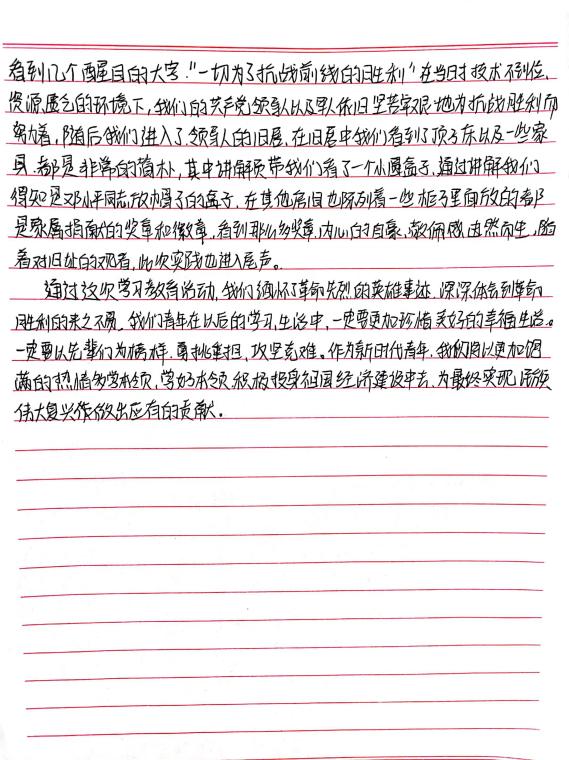 看到几个醒目的大字："一切为了抗战前线的胜利"在当时技术不到位、
资源匮乏的环境下，我们的共产党领导人以及军人依旧坚苦卓艰地为抗战胜利而
努力着，随后我们进入了领导人的旧居，在旧居中我们看到了顶子床以及一些家
具，都是非常的简朴，其中讲解员带我们看了一个小圆盒子，通过讲解我们
得知是邓小平同志放帽子的盒子，在其他房间也陈列着一些柜子里面放的都
是家属捐献的奖章和徽章，看到那么多奖章，内心的自豪、敬佩感由然而生，随
着对旧址的观看，此次实践也进入尾声。
通过这次学习教育活动，我们缅怀了革命先烈的英雄事迹，深深体会到革命
胜利的来之不易，我们青年在以后的学习生活中，一定要更加珍惜美好的幸福生活。
一定要以先辈们为榜样，勇挑重担，攻坚克难。作为新时代青年，我们以更加饱
满的热情学本领，学好本领，积极投身祖国经济建设中去，为最终实现民族
伟大复兴作做出应有的贡献。